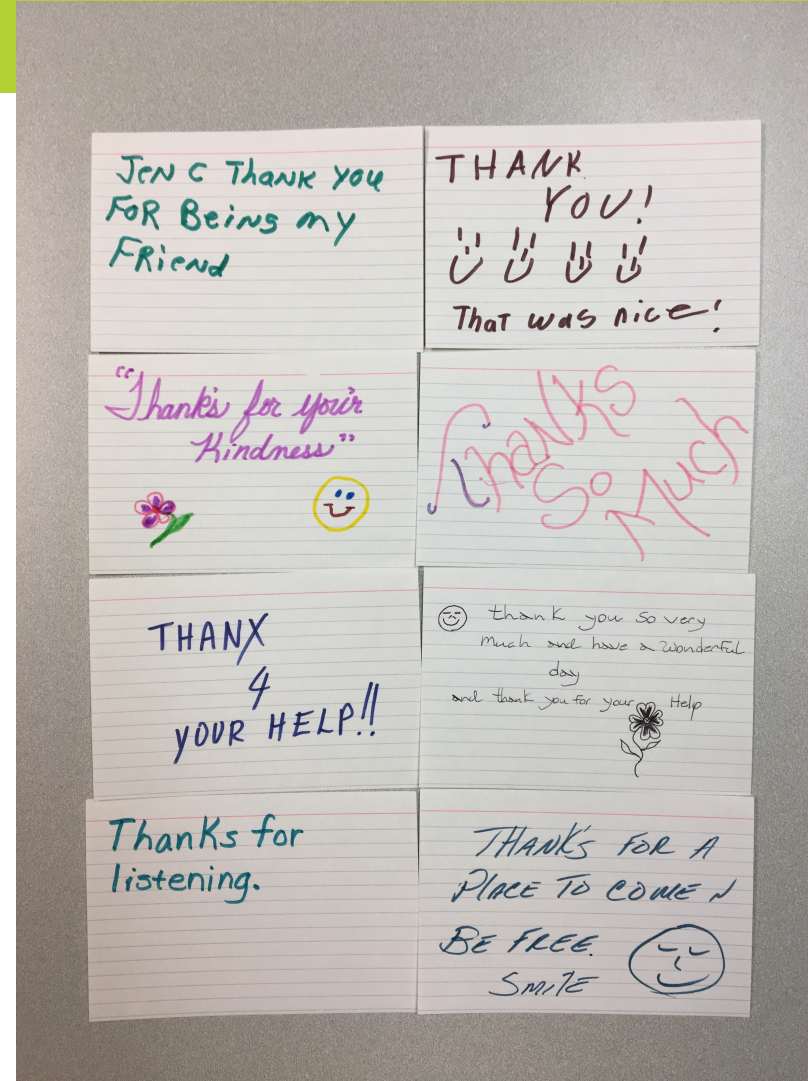 JEN C Thank you
FOR Being my
FRiend
THANK
YOU!
That was nice!
"Thank's for you'r
Kindness"
Thanks
So
Much
THANX
4
YOUR HELP!!
thank you so very
much and have a wonderful
day
and thank you for your Help
Thanks for
listening.
THANK'S FOR A
PLACE TO COME N
BE FREE.
SMILE